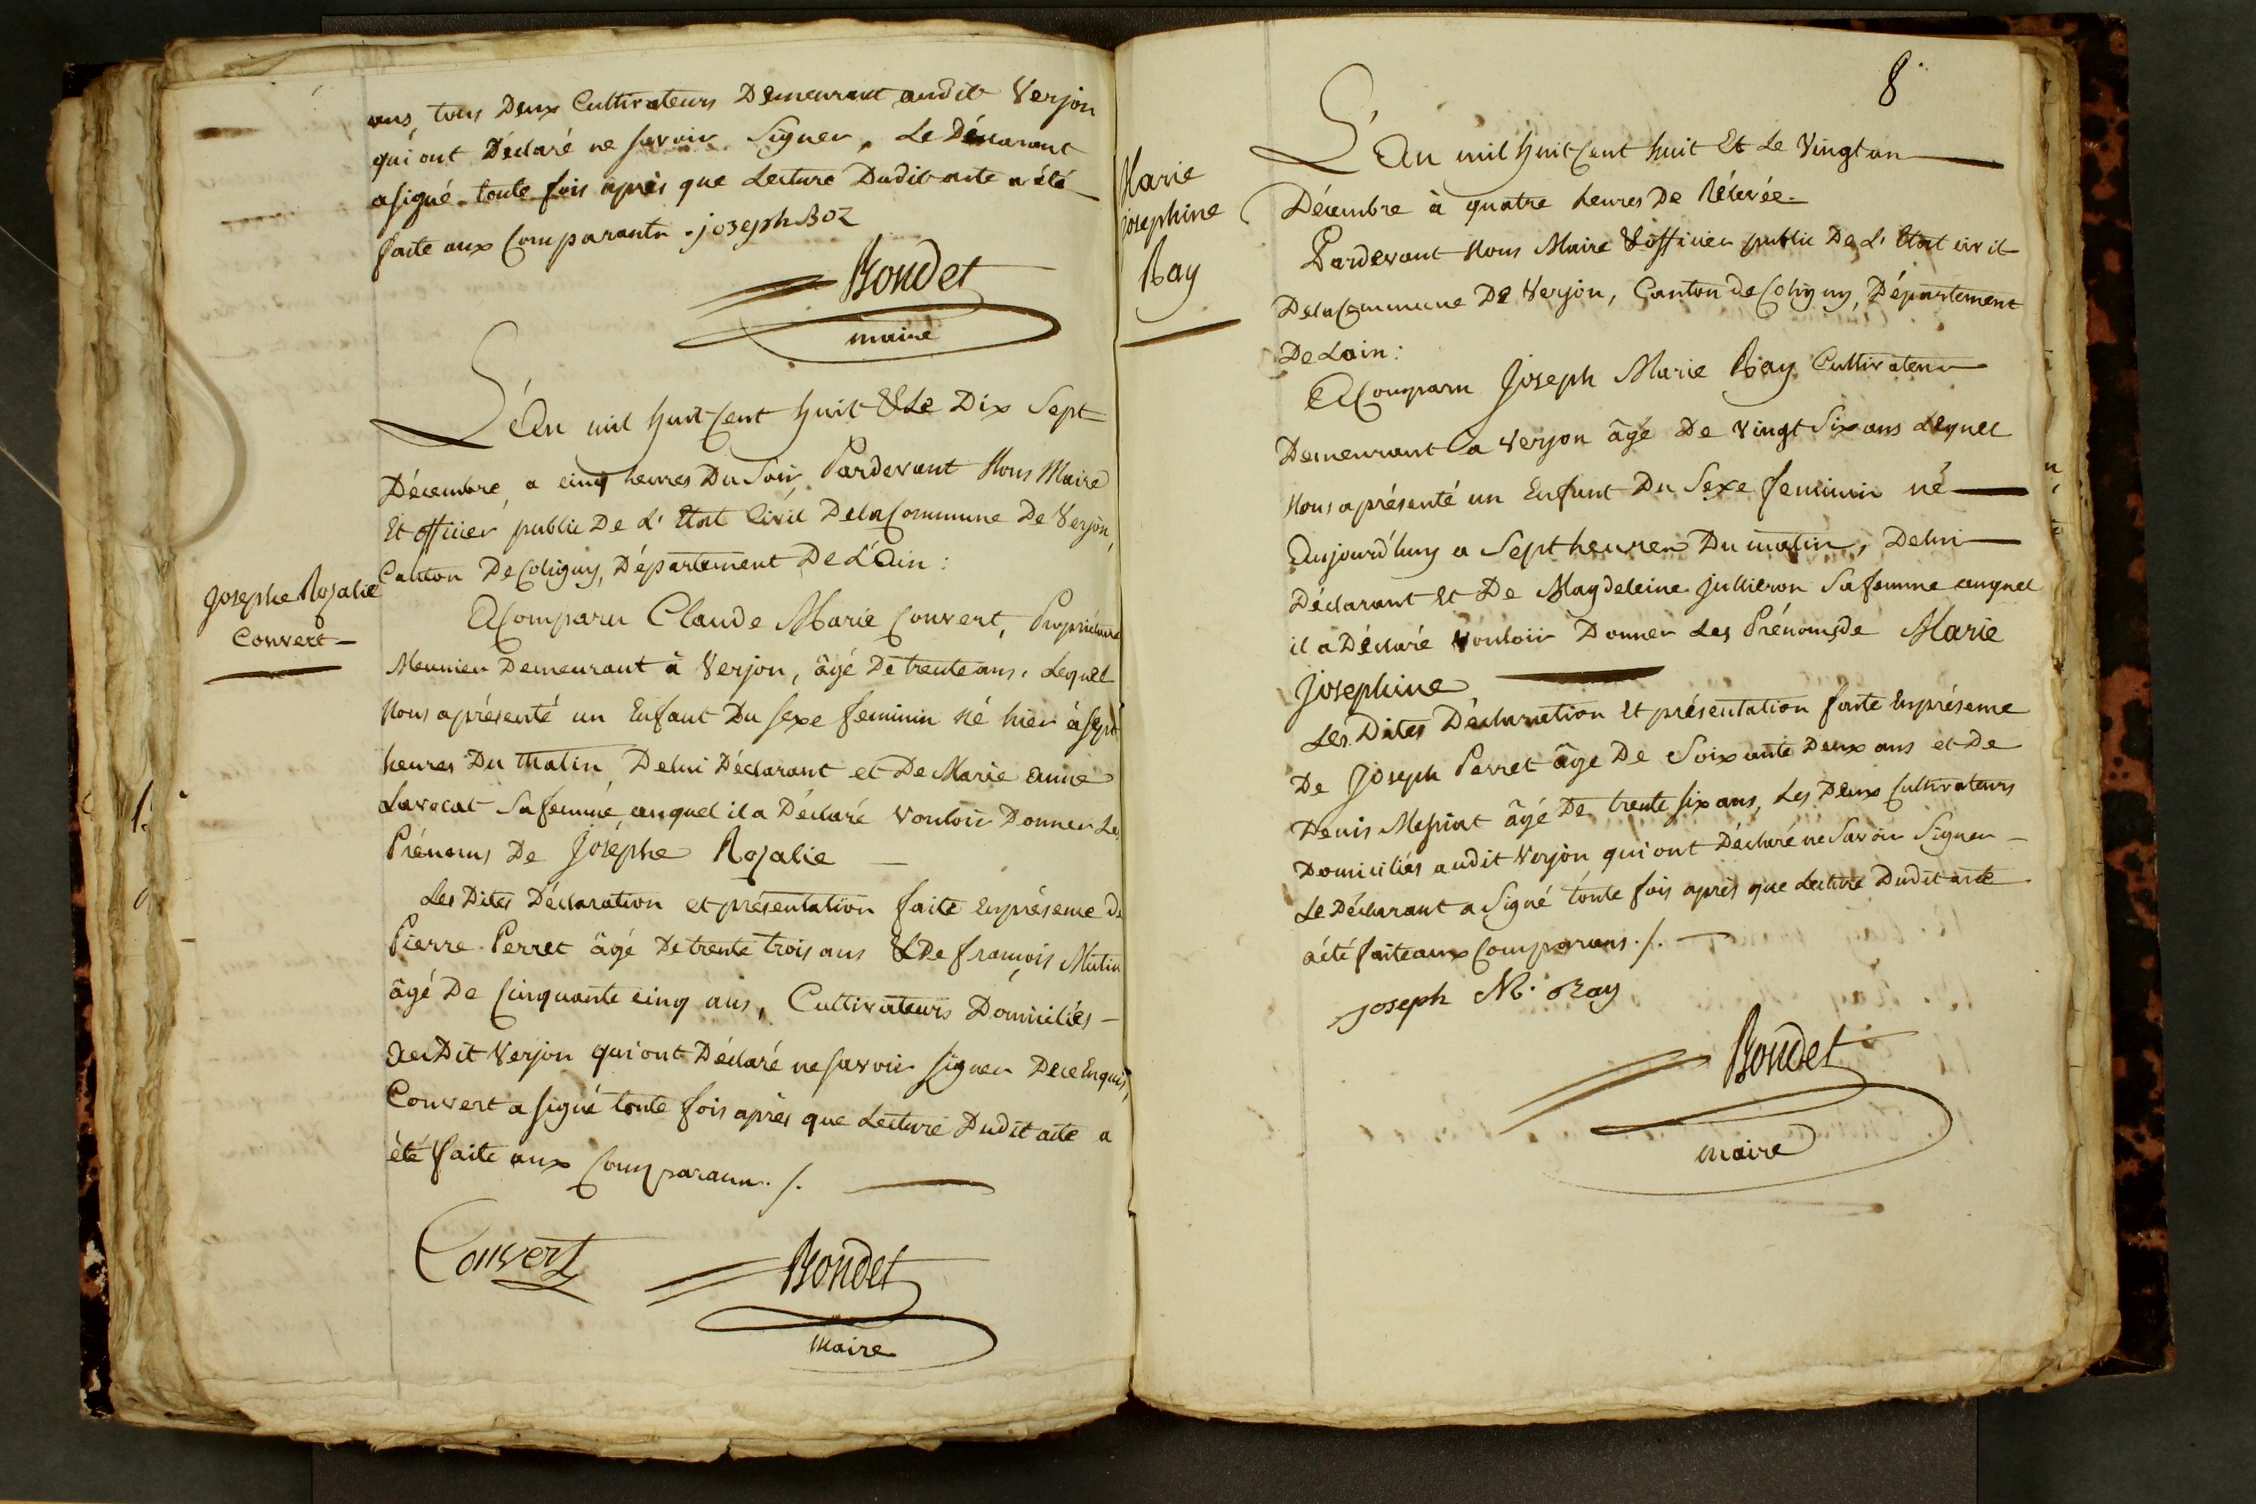 ans, tous Deux Cultivateurs Demeurant audit Verjon
qui ont Déclaré ne savoir Signer, Le Déclarant
a signé toute fois après que Lecture Dudit acte a été
faite aux Comparants. joseph Boz
Bondet
maire
L'An mil huit Cent huit & Le Dix Sept
Décembre, a cinq heures Du Soir, Pardevant Nous Maire
Et officier public De L'Etat Civil De la Commune De Verjon,
Canton De Coligny, Département De L'Ain :
Josephe Rosalie
Convert
A Comparu Claude Marie Convert, Propriétaire
Meunier Demeurant à Verjon, âgé De trente ans, Lequel
Nous a présenté un Enfant Du Sexe feminin né hier à Sept
heures Du Matin, De lui Déclarant et De Marie anne
Lavocat Sa femme, auquel il a Déclaré Vouloir Donner Les
Prénoms De Josephe Rosalie
Les Dites Déclaration et présentation faite En présence de
Pierre Perret âgé De trente trois ans & De françois Mutin
âgé De Cinquante cinq ans, Cultivateurs Domiciliés
Au Dit Verjon qui ont Déclaré ne Savoir Signer De ce Enquis,
Convert a signé toute fois après que Lecture Dudit acte a
été faite aux Comparans ./.
Convert
Bondet
maire
8
Marie
josephine
Ray
L'An mil huit Cent huit Et Le Vingt un
Décembre à quatre heures De Rélevée
Pardevant Nous Maire & officier public De L'Etat civil
De la Commune De Verjon, Canton de Coligny, Département
De Lain :
A Comparu Joseph Marie Ray Cultivateur
Demeurant a Verjon âgé De Vingt Six ans Lequel
Nous a présenté un Enfant Du Sexe feminin né
Aujourd'huy a Sept heures Du matin, De lui
Déclarant Et De Magdeleine Jullieron Sa femme auquel
il a Déclaré Vouloir Donner Les Prénoms de Marie
Josephine
Les Dites Déclaration Et présentation faite En présence
De Joseph Perret âge De Soixante Deux ans et De
Denis Messiat âgé De trente six ans, Les Deux Cultivateurs
Domiciliés audit Verjon qui ont Déclaré ne Savoir Signer
Le Déclarant a Signé toute fois après que Lecture Dudit acte
a été faite aux Comparans ./.
joseph M. Ray
Bondet
maire